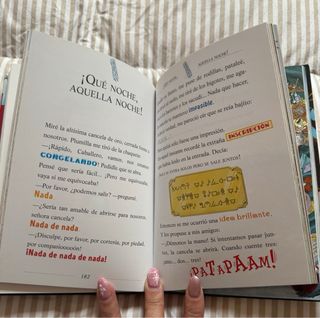 ¡QUÉ NOCHE,
AQUELLA NOCHE!
Miré la altísima cancela de oro, cerrada frente a
nosotros. Plumilla me tiró de la chaqueta.
—¡Rápido, Caballero, vamos, nos estamos
CONGELANDO! Pedidle que se abra.
Pensé que sería fácil... ¡Pero me equivocaba,
vaya si me equivocaba!
—Por favor, ¿podemos salir? —pregunté.
Nada
—¿Sería tan amable de abrirse para nosotros,
señora cancela?
Nada de nada
—¡Disculpe, por favor, por cortesía, por piedad,
por compasiooooón!
¡Nada de nada de nada!
182
¡AQUELLA NOCHE!
puse de rodillas, pataleé,
me tiré de los bigotes, me aga-
Nada que hacer!
imposible.
me pareció oír que se reía bajito:
sólo fuese una impresión.
recordé la extraña INSCRIPCIÓN
en la entrada. Decía:
SE SALE JUNTOS!
Entonces se me ocurrió una idea brillante.
—¡Dadme la mano! Si intentamos pasar jun-
tos, la cancela se abrirá. Cuando cuente tres:
dos... ¡tres!
¡PATAPAAM!